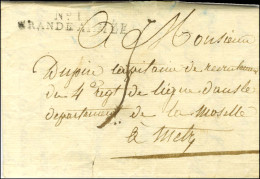 N° 1
GRANDE ARMÉE
A Monsieur
Dupin capitaine de recrutement
du 4e regt de ligne dans le
departement de la Moselle
à Metz